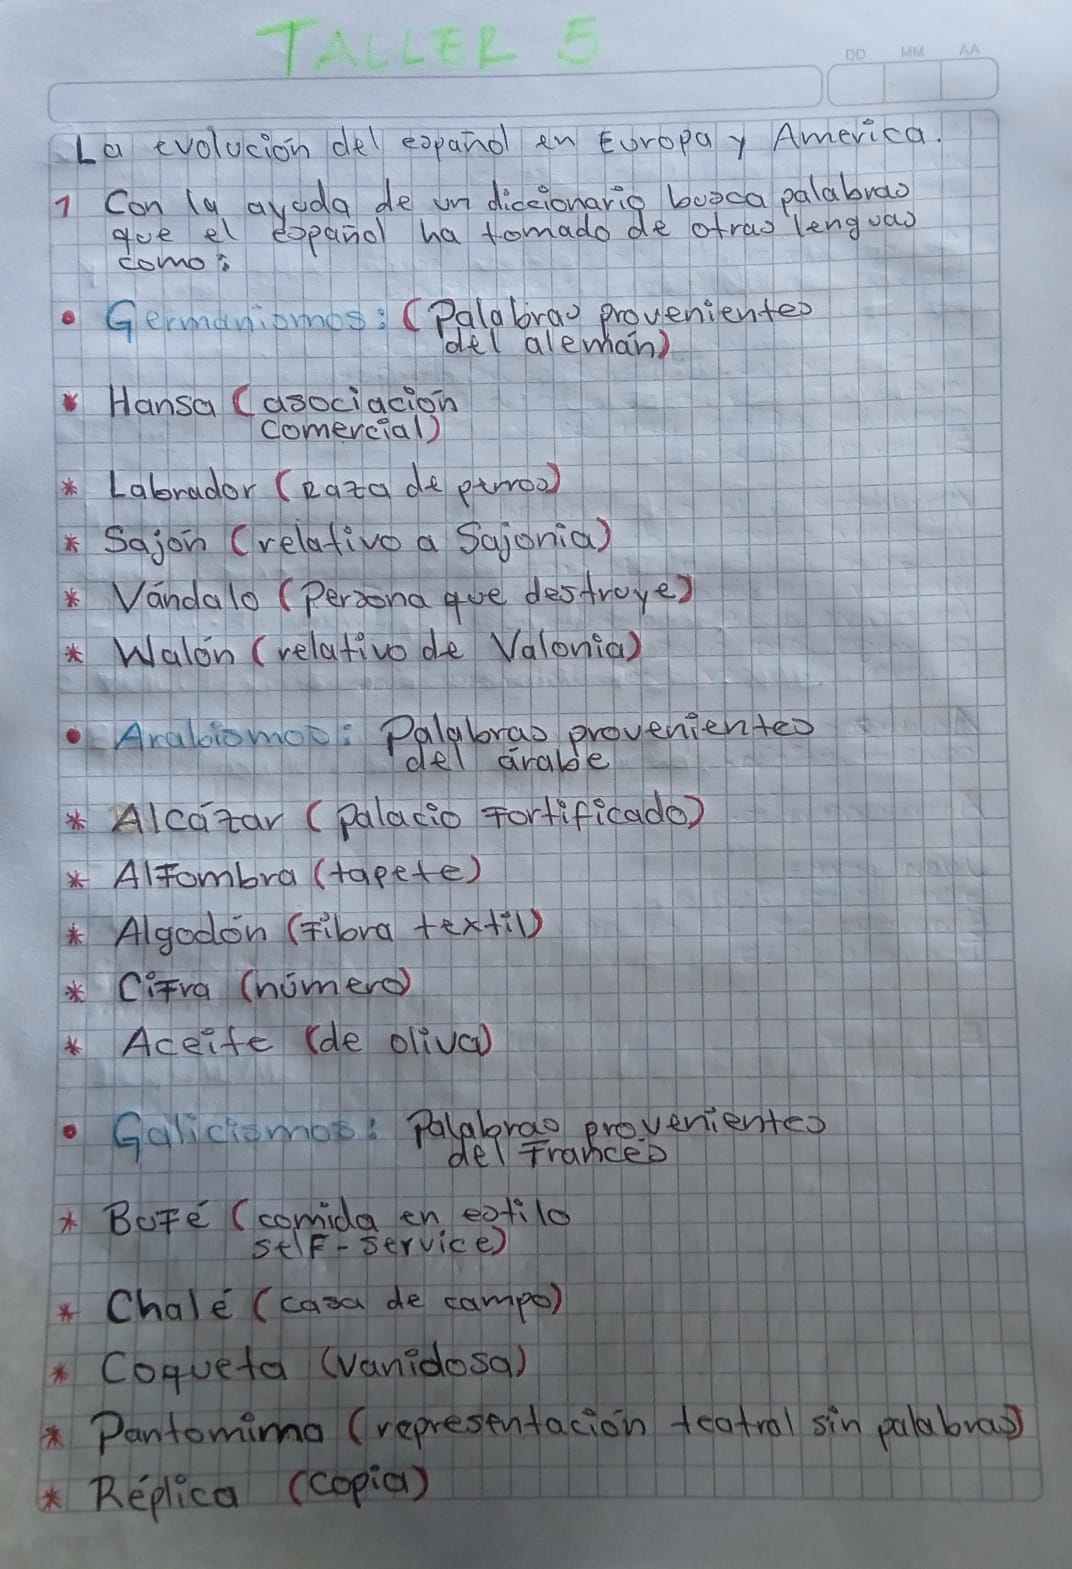 TALLER 5
DD MM AA
La evolución del español en Europa y America.
1 Con la ayuda de un diccionario busca palabras
que el español ha tomado de otras lenguas
como:
• Germanismos: (Palabras provenientes
del alemán)
* Hansa (asociación
comercial)
* Labrador (Raza de perros)
* Sajón (relativo a Sajonia)
* Vándalo (Persona que destruye)
* Walón (relativo de Valonia)
• Arabismos: Palabras provenientes
del árabe
* Alcázar (Palacio Fortificado)
* Alfombra (tapete)
* Algodón (Fibra textil)
* Cifra (número)
* Aceite (de oliva)
• Galicismos: Palabras provenientes
del Frances
* Bufé (comida en estilo
self-service)
* Chalé (casa de campo)
* Coqueta (vanidosa)
* Pantomima (representación teatral sin palabras)
* Réplica (copia)